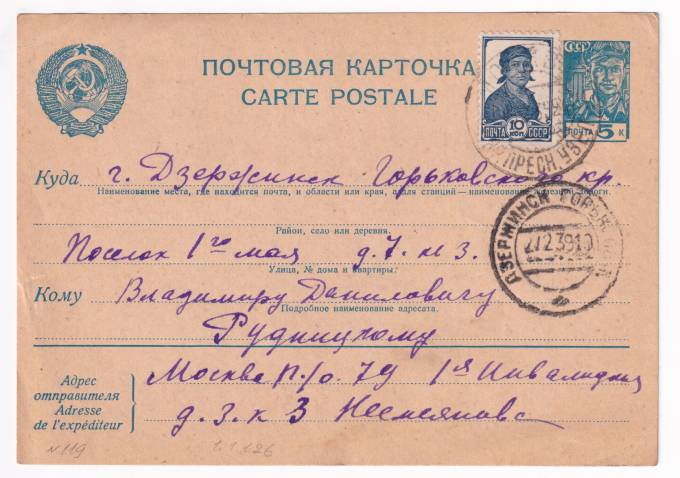 ПОЧТОВАЯ КАРТОЧКА
CARTE POSTALE
10 КОП.
ПОЧТА СССР
СССР
ПОЧТА 5 К
Куда г. Дзержинск Горьковского кр.
Наименование места, где находится почта, и области или края, а для станций — наименование железной дороги.
Район, село или деревня.
Поселок 1го мая д. 7. к 3.
Улица, № дома и квартиры.
ДЗЕРЖИНСК ГОРЬК
27239
Кому Владимиру Даниловичу
Подробное наименование адресата.
Рудницкому
Адрес отправителя
Adresse de l'expéditeur
Москва п/о. 79 1я Инвалидная
д. 3. к 3
N 119